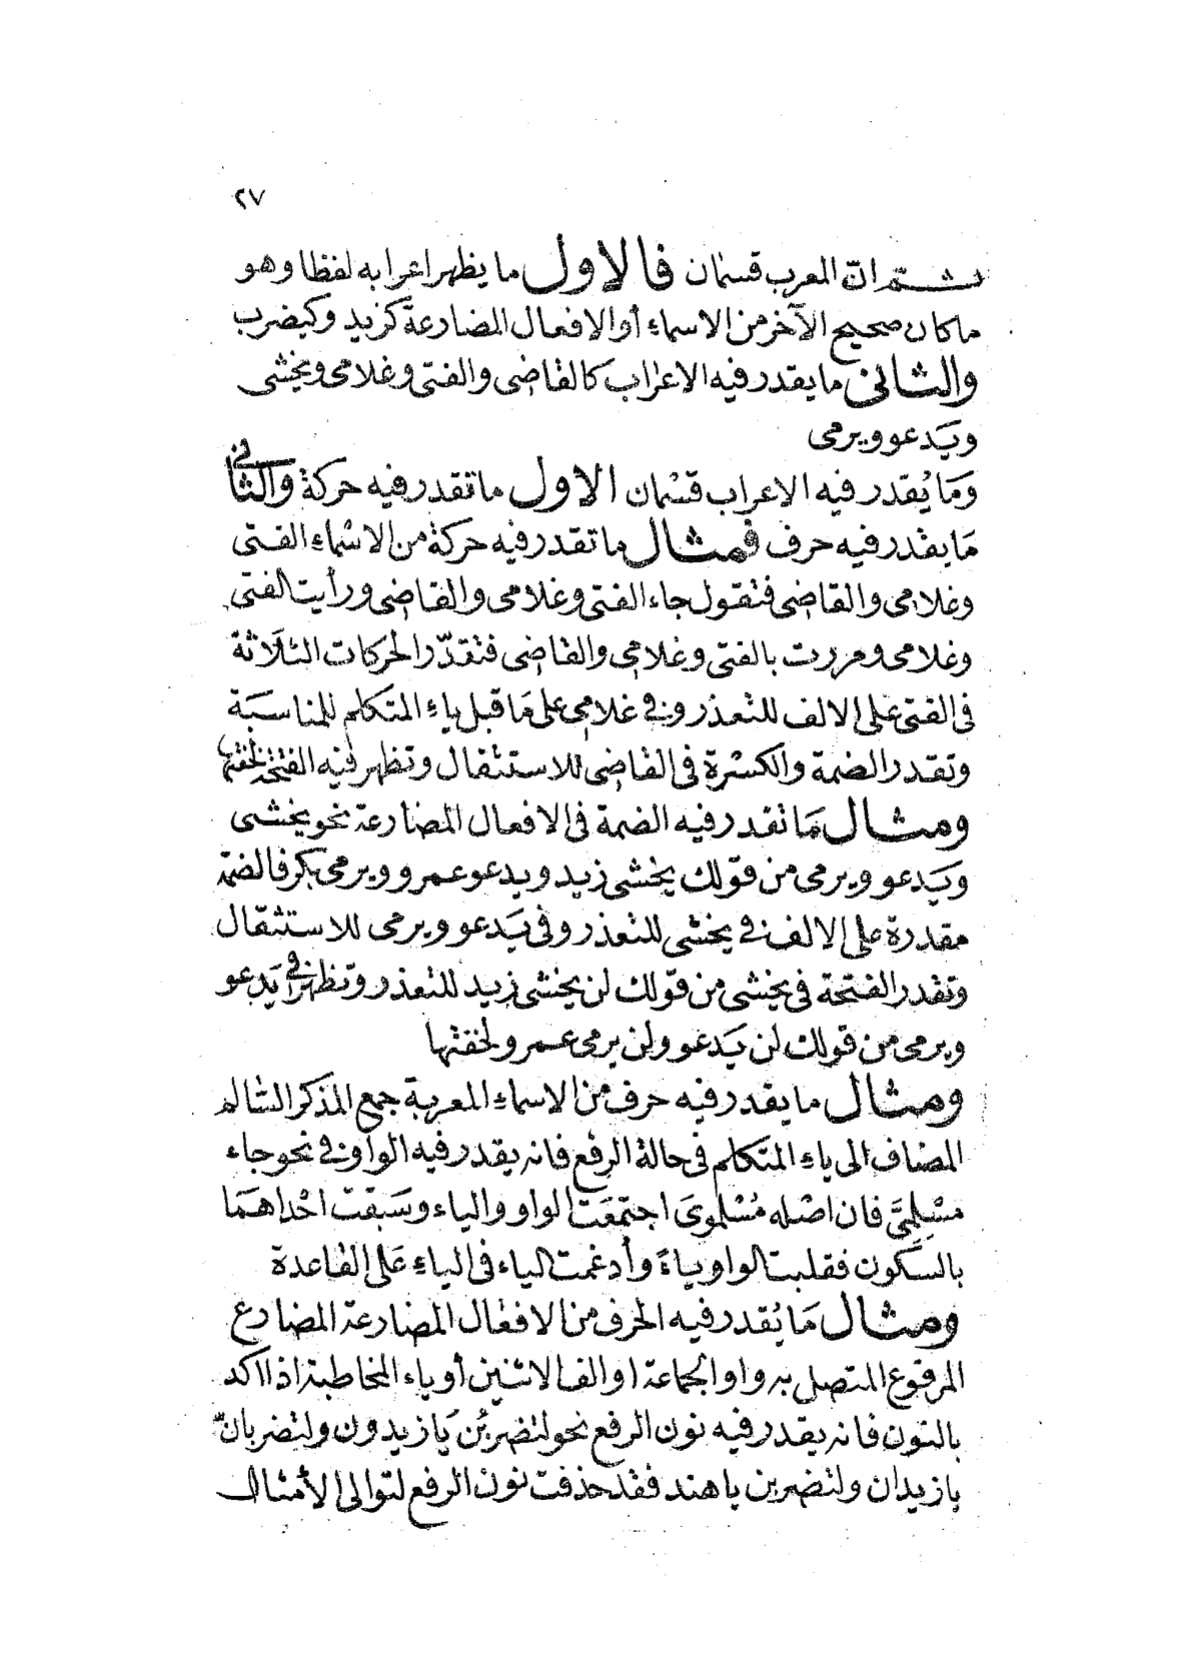 ٢٧
ثم ان المعرب قسمان فالاول ما يظهر اعرابه لفظا وهو
ماكان صحيح الآخر من الاسماء أو الافعال المضارعة كزيد وكيضرب
والثاني ما يقدر فيه الاعراب كالقاضى والفتى وغلامى ويخشى
ويَدعو ويرمى
وَمَا يُقدر فيه الاعراب قسمان الاول ما تقدر فيه حركة والثاني
مَا يقدر فيه حرف فمثال ما تقدر فيه حركة من الاسماء الفتى
وغلامى والقاضى فتقول جاء الفتى وغلامى والقاضى ورأيت الفتى
وغلامى ومررت بالفتى وغلامى والقاضى فتقدّر الحركات الثلاثة
فى الفتى على الالف للتعذر وفي غلامى على مَا قبل ياءِ المتكلم للمناسبَة
وتقدر الضمة والكسرة فى القاضى للاستثقال وتظهر فيه الفتحة لخفتها
ومثال مَا تقدر فيه الضمة فى الافعال المضارعة نحو يخشى
ويَدعو ويرمى من قولك يخشى زيد ويدعو عمرو ويرمى بكر فالضمة
مقدرة على الالف في يخشى للتعذر وفى يَدعو ويرمى للاستثقال
وتقدر الفتحة فى يخشى من قولك لن يخشى زيد للتعذر وتظهر في يَدعو
ويرمى من قولك لن يَدعو ولن يرمى عمرو لخفتها
ومثال ما يقدر فيه حرف من الاسماءِ المعربة جمع المذكر السالم
المضاف الى ياءِ المتكلم فى حالة الرفع فانه يقدر فيه الواو في نحو جاء
مسْلِمِيَّ فان اصْله مُسْلموىَ اجتمعَت الواو والياء وسَبقت احْداهمَا
بالسكون فقلبت الواو ياءً وأدغمت الياء فى الياءِ عَلى القاعدة
ومثال مَا يُقدر فيه الحرف من الافعال المضارعة المضارع
المرفوع المتصل به واو الجماعة او الف الاثنين أو ياء المخاطبة اذا اكد
بالنون فانه يقدر فيه نون الرفع نحو لتضربُن يَا زيدون ولتضربانّ
يا زيدان ولتضربن يا هند فقد حذفت نون الرفع لتوالى الأمثال